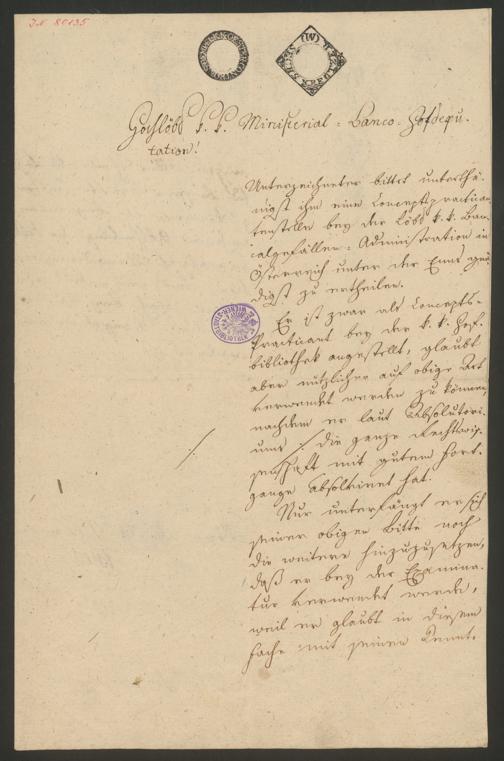 I.N. 80135
SECHS KREUTZER (M)
Hochlöbl. k. k. Ministerial-Banco-Hofdepu-
tation!
Unterzeichneter bittet unterthä-
nigst ihm eine Conceptspractican-
tenstelle bey der löbl. k. k. Ban-
calgefällen-Administration in
Österreich unter der Enns gnä-
digst zu ertheilen.
Er ist zwar als Concepts-
Practicant bey der k. k. Hof-
bibliothek angestellt, glaubt
aber nützlicher auf obige Art
verwendet werden zu können,
nachdem er laut Absolutori-
ums ·/. die ganze Rechtswis-
senschaft mit gutem Fort-
gange absolviret hat.
·/.
Nur unterfängt er sich
seiner obigen Bitte noch
die weitere hinzuzusetzen,
daß er bey der Examina-
tur verwendet werde,
weil er glaubt in diesem
Fache mit seinen Kennt-